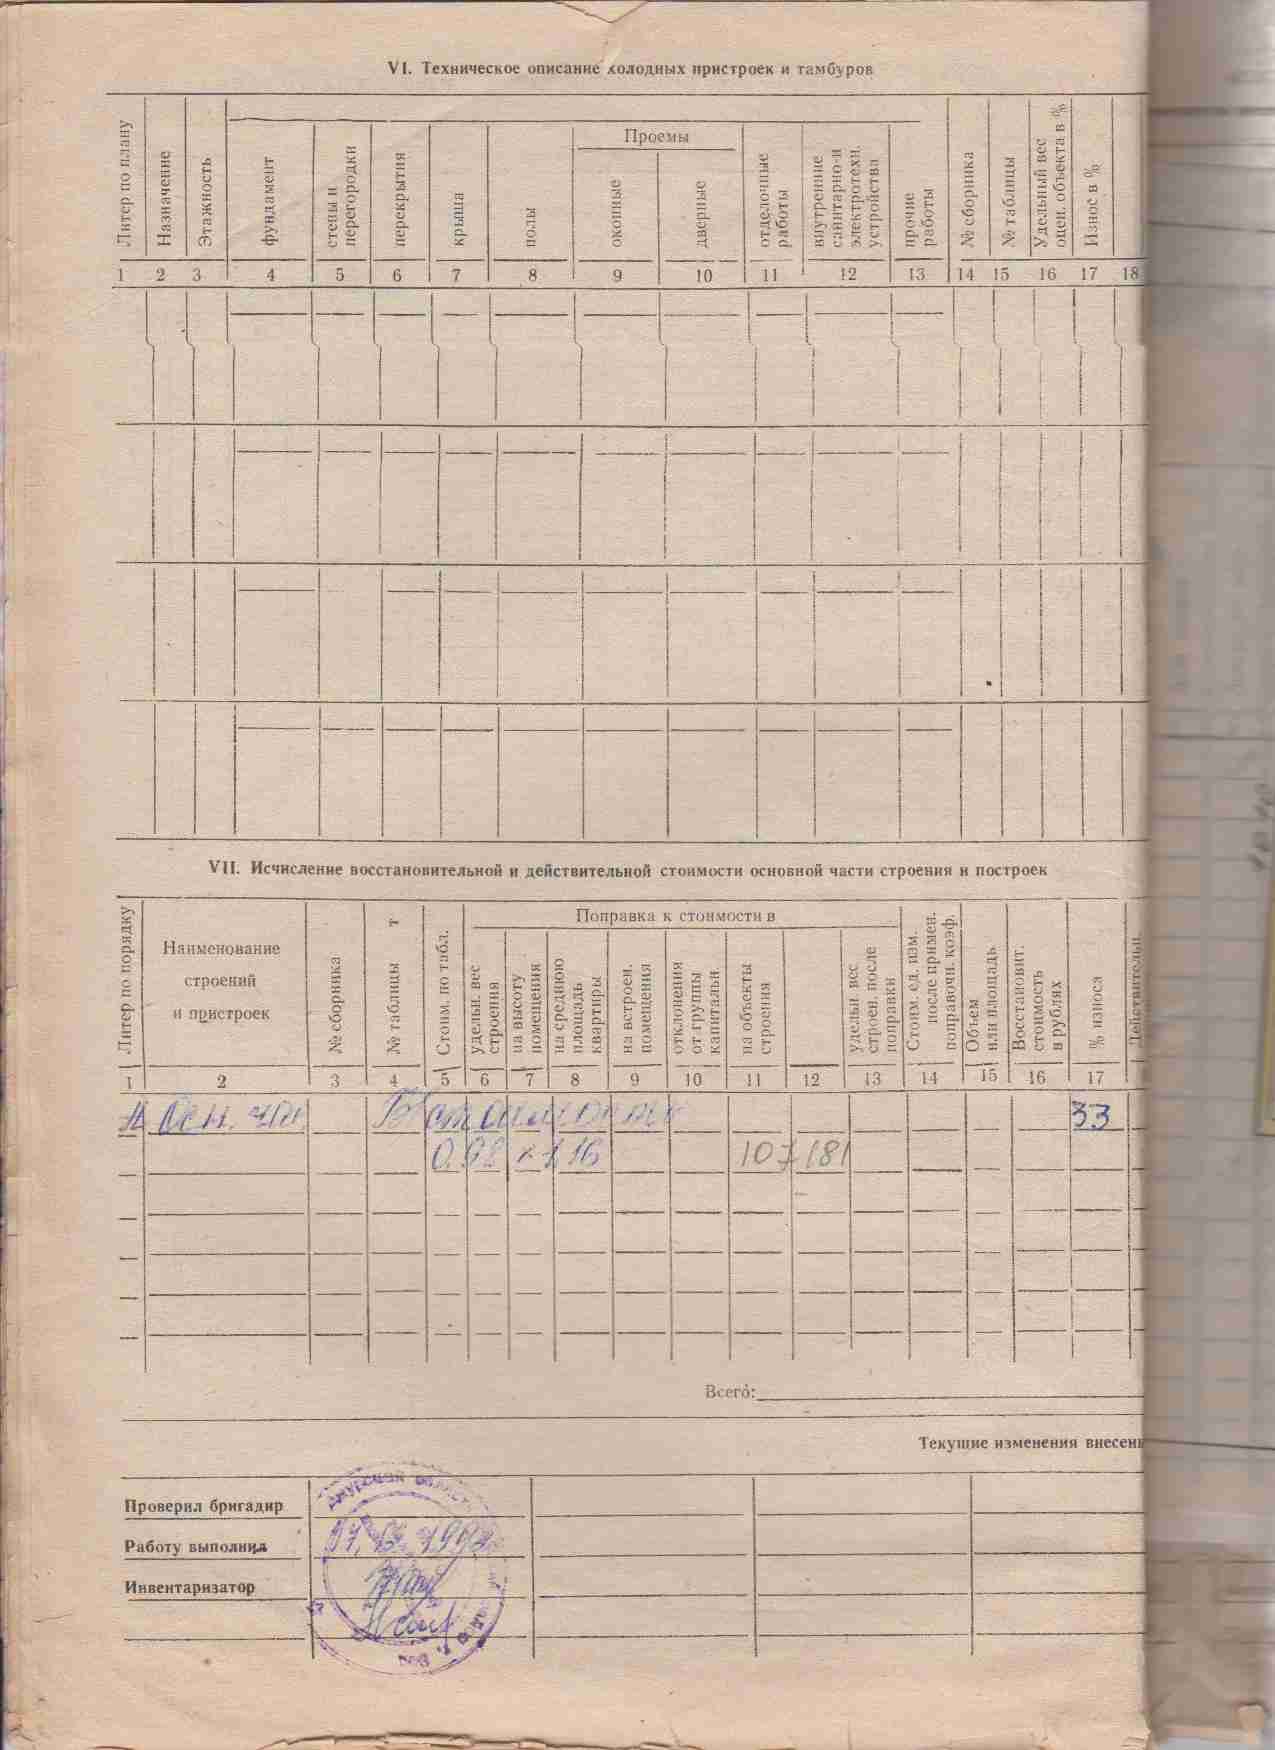 VI. Техническое описание холодных пристроек и тамбуров
Литер по плану
Назначение
Этажность
фундамент
стены и перегородки
перекрытия
крыша
полы
Проемы
оконные
дверные
отделочные работы
внутренние санитарно-и электротехн. устройства
прочие работы
№ сборника
№ таблицы
Удельный вес оцен. объекта в %
Износ в %
1 2 3 4 5 6 7 8 9 10 11 12 13 14 15 16 17 18
VII. Исчисление восстановительной и действительной стоимости основной части строения и построек
Литер по порядку
Наименование
строений
и пристроек
№ сборника
№ таблицы
т
Стоим. по табл.
Поправка к стоимости в
удельн. вес строения
на высоту помещения
на среднюю площадь квартиры
на встроен. помещения
отклонения от группы капитальн.
на объекты строения
удельн. вес строен. после поправки
Стоим. ед. изм. после примен. поправочн. коэф.
Объем или площадь
Восстановит. стоимость в рублях
% износа
Действительн.
1 2 3 4 5 6 7 8 9 10 11 12 13 14 15 16 17
Осн. 33
0.98 х 1.16 107181
Всего:
Текущие изменения внесен
Проверил бригадир
Работу выполнил
Инвентаризатор
Амурская область